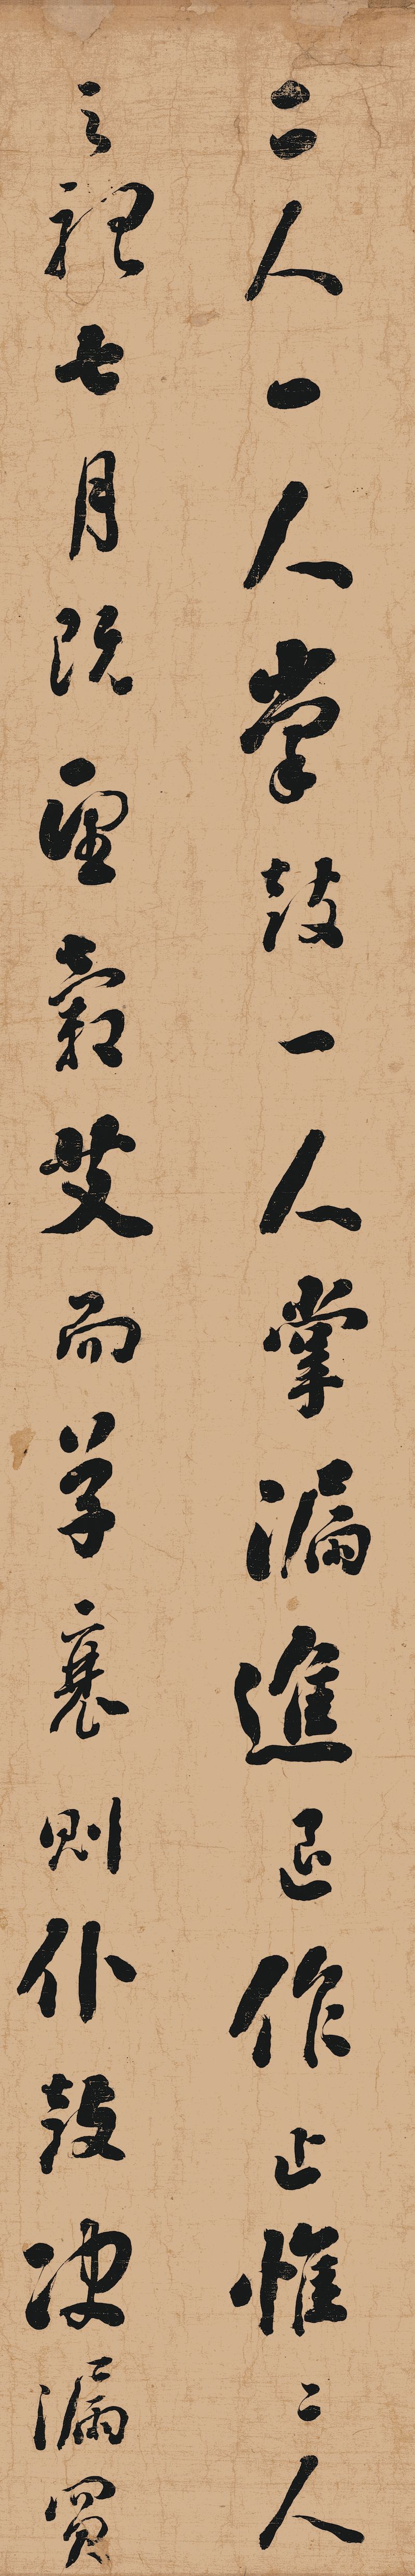 二人一人掌鼓一人掌漏進退作止惟二人
之聽七月既望穀艾而草衰則仆鼓决漏買